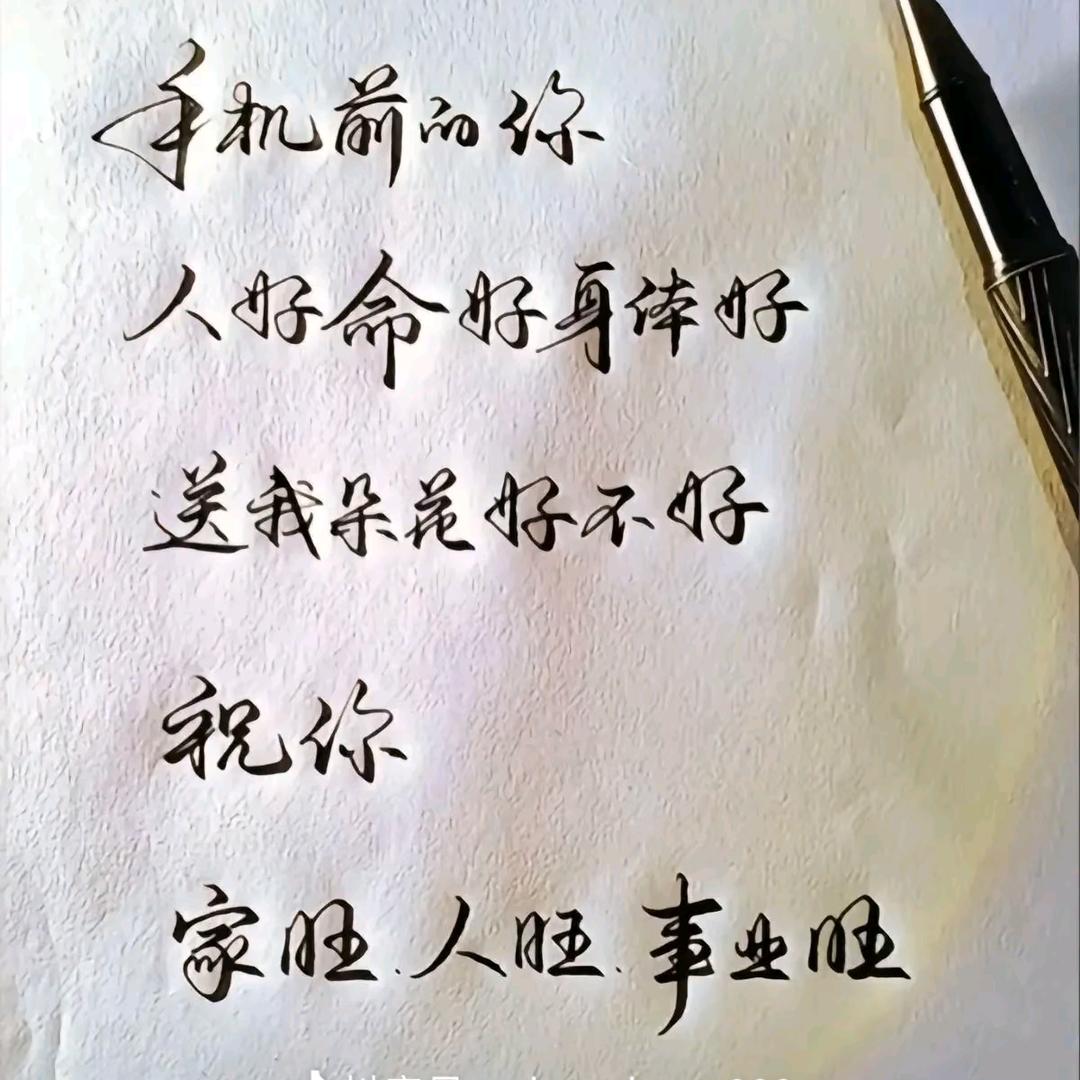 手机前的你
人好命好身体好
送我朵花好不好
祝你
家旺.人旺.事业旺